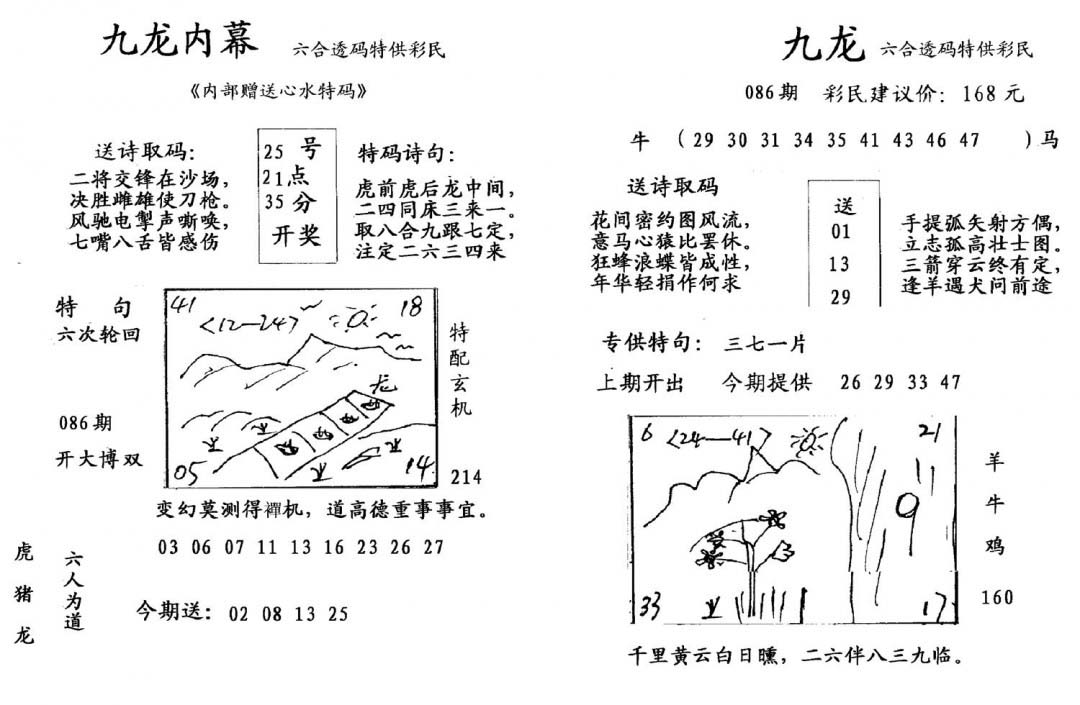 九龙内幕 六合透码特供彩民
《内部赠送心水特码》
送诗取码:
二将交锋在沙场,
决胜雌雄使刀枪。
风驰电掣声嘶唤,
七嘴八舌皆感伤
25 号
21点
35 分
开奖
特码诗句:
虎前虎后龙中间,
二四同床三来一。
取八合九跟七定,
注定二六三四来
特 句
六次轮回
086期
开大博双
41
<12-24>
18
龙
05
14
特配玄机
214
变幻莫测得禪机, 道高德重事事宜。
虎猪龙
六人为道
03 06 07 11 13 16 23 26 27
今期送: 02 08 13 25
九龙 六合透码特供彩民
086期 彩民建议价: 168元
牛 (29 30 31 34 35 41 43 46 47 )马
送诗取码
花间密约图风流,
意马心猿比罢休。
狂蜂浪蝶皆成性,
年华轻捐作何求
送
01
13
29
手提弧矢射方偶,
立志孤高壮士图。
三箭穿云终有定,
逢羊遇犬问前途
专供特句: 三七一片
上期开出 今期提供 26 29 33 47
6
<24-41>
21
9
33
17
羊牛鸡
160
千里黄云白日曛, 二六伴八三九临。